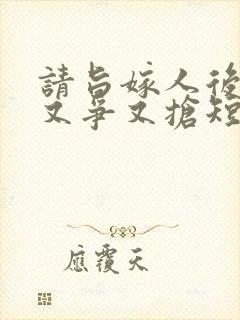 請旨嫁人後
又爭又搶短
應覆天